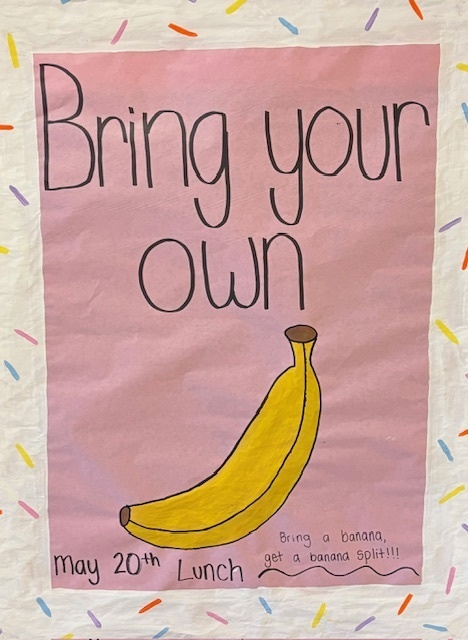 Bring your
own
Bring a banana,
get a banana split!!!
May 20th Lunch